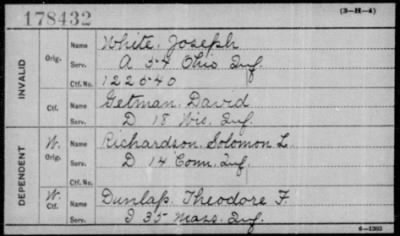 178432
(3-H-4)
INVALID
Orig. Name White, Joseph
Serv. A 54 Ohio Inf.
Ctf. No. 122540
Ctf. Name Getman, David
Serv. D 18 Wis. Inf.
DEPENDENT
W. Orig. Name Richardson, Solomon L.
Serv. D 14 Conn. Inf.
Ctf. No.
W. Ctf. Name Dunlap, Theodore F.
Serv. I 35 Mass. Inf.
6-1303